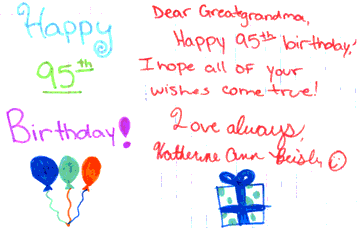 Happy
95th
Birthday!
Dear Greatgrandma,
Happy 95th birthday!
I hope all of your
wishes come true!
Love always,
Katherine Ann